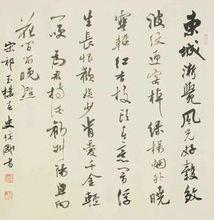 東城漸覺風光好縠皺
波紋迎客棹綠楊烟外曉
寒輕紅杏枝頭春意鬧浮
生長恨歡娛少肯愛千金輕
一笑為君持酒勸斜陽且向
花間留晚照
宋祁玉樓春